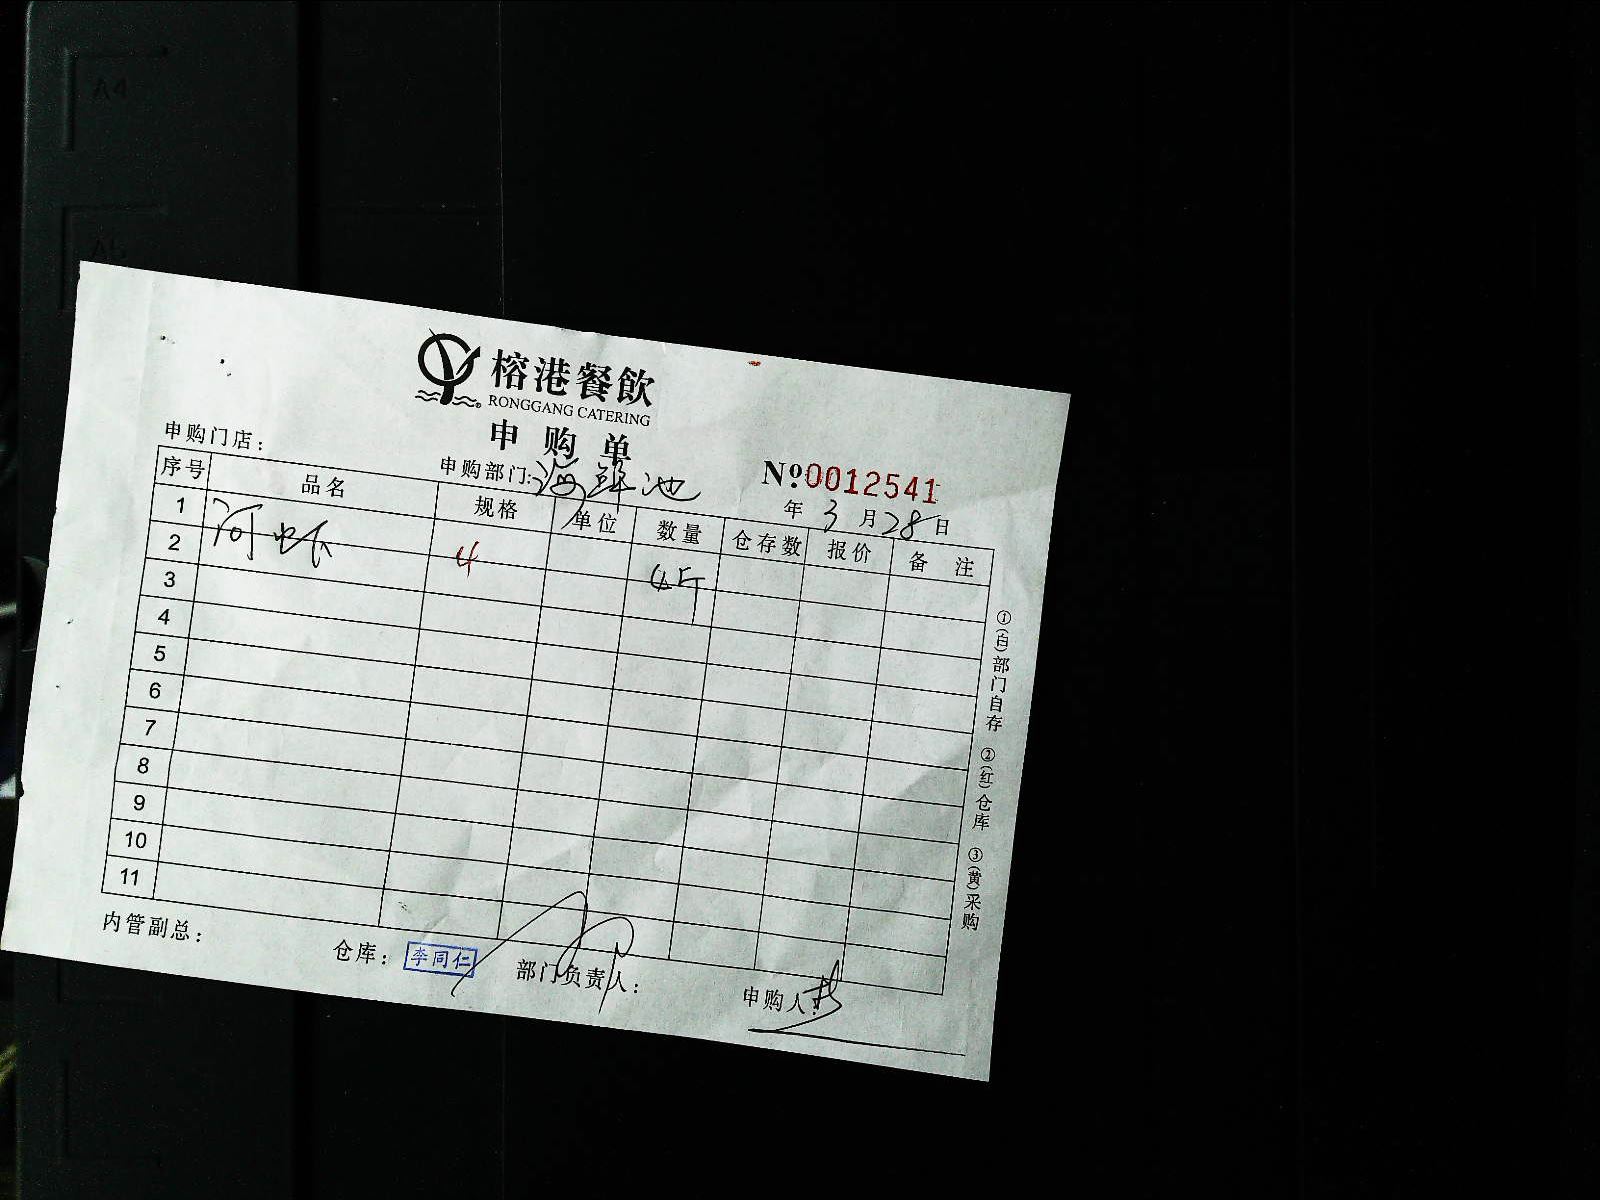 A4
榕港餐飲
RONGGANG CATERING
申购单
申购门店：
申购部门：海鲜池
№0012541
年3月28日
序号 品名 规格 单位 数量 仓存数 报价 备注
1 河虾 4 4斤
2
3
4
5
6
7
8
9
10
11
①(白)部门自存 ②(红)仓库 ③(黄)采购
内管副总：
仓库：李同仁
部门负责人：
申购人：